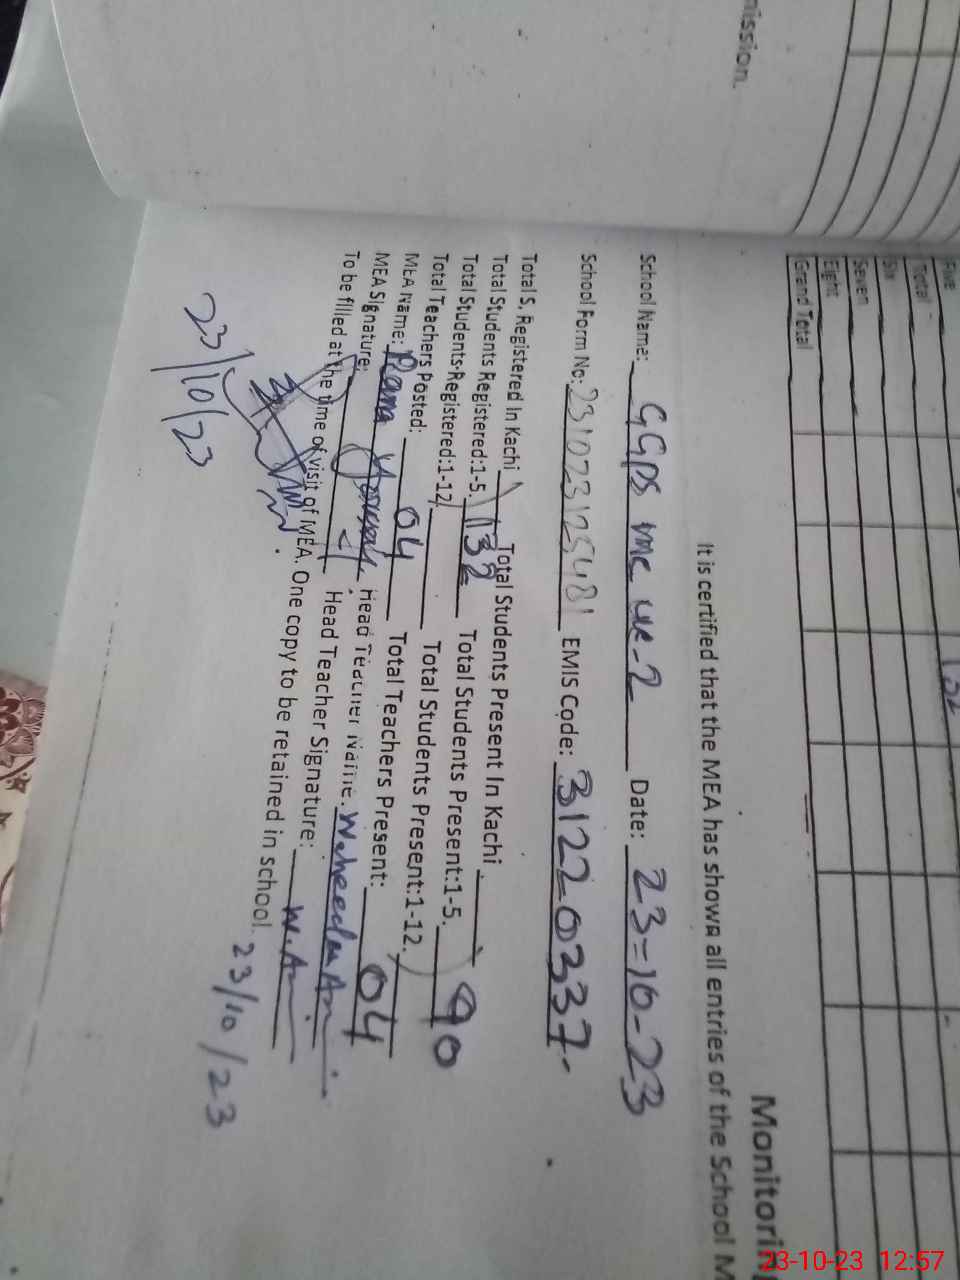 mission.
Five
Total
Six
Seven
Eight
Grand Total
132
Monitorin
It is certified that the MEA has shown all entries of the School M
School Name: GGPS MC UC-2 Date: 23=10-23
School Form No: 231023125481 EMIS Code: 31220337-
Total S. Registered In Kachi Total Students Present In Kachi
Total Students Registered:1-5. 132 Total Students Present:1-5. 90
Total Students Registered:1-12 Total Students Present:1-12.
Total Teachers Posted: 04 Total Teachers Present: 04
MEA Name: Rana Head Teacher Name. Waheeda
MEA Signature: Head Teacher Signature: W.A
To be filled at the time of visit of MEA. One copy to be retained in school.
23/10/23
23/10/23
23-10-23 12:57